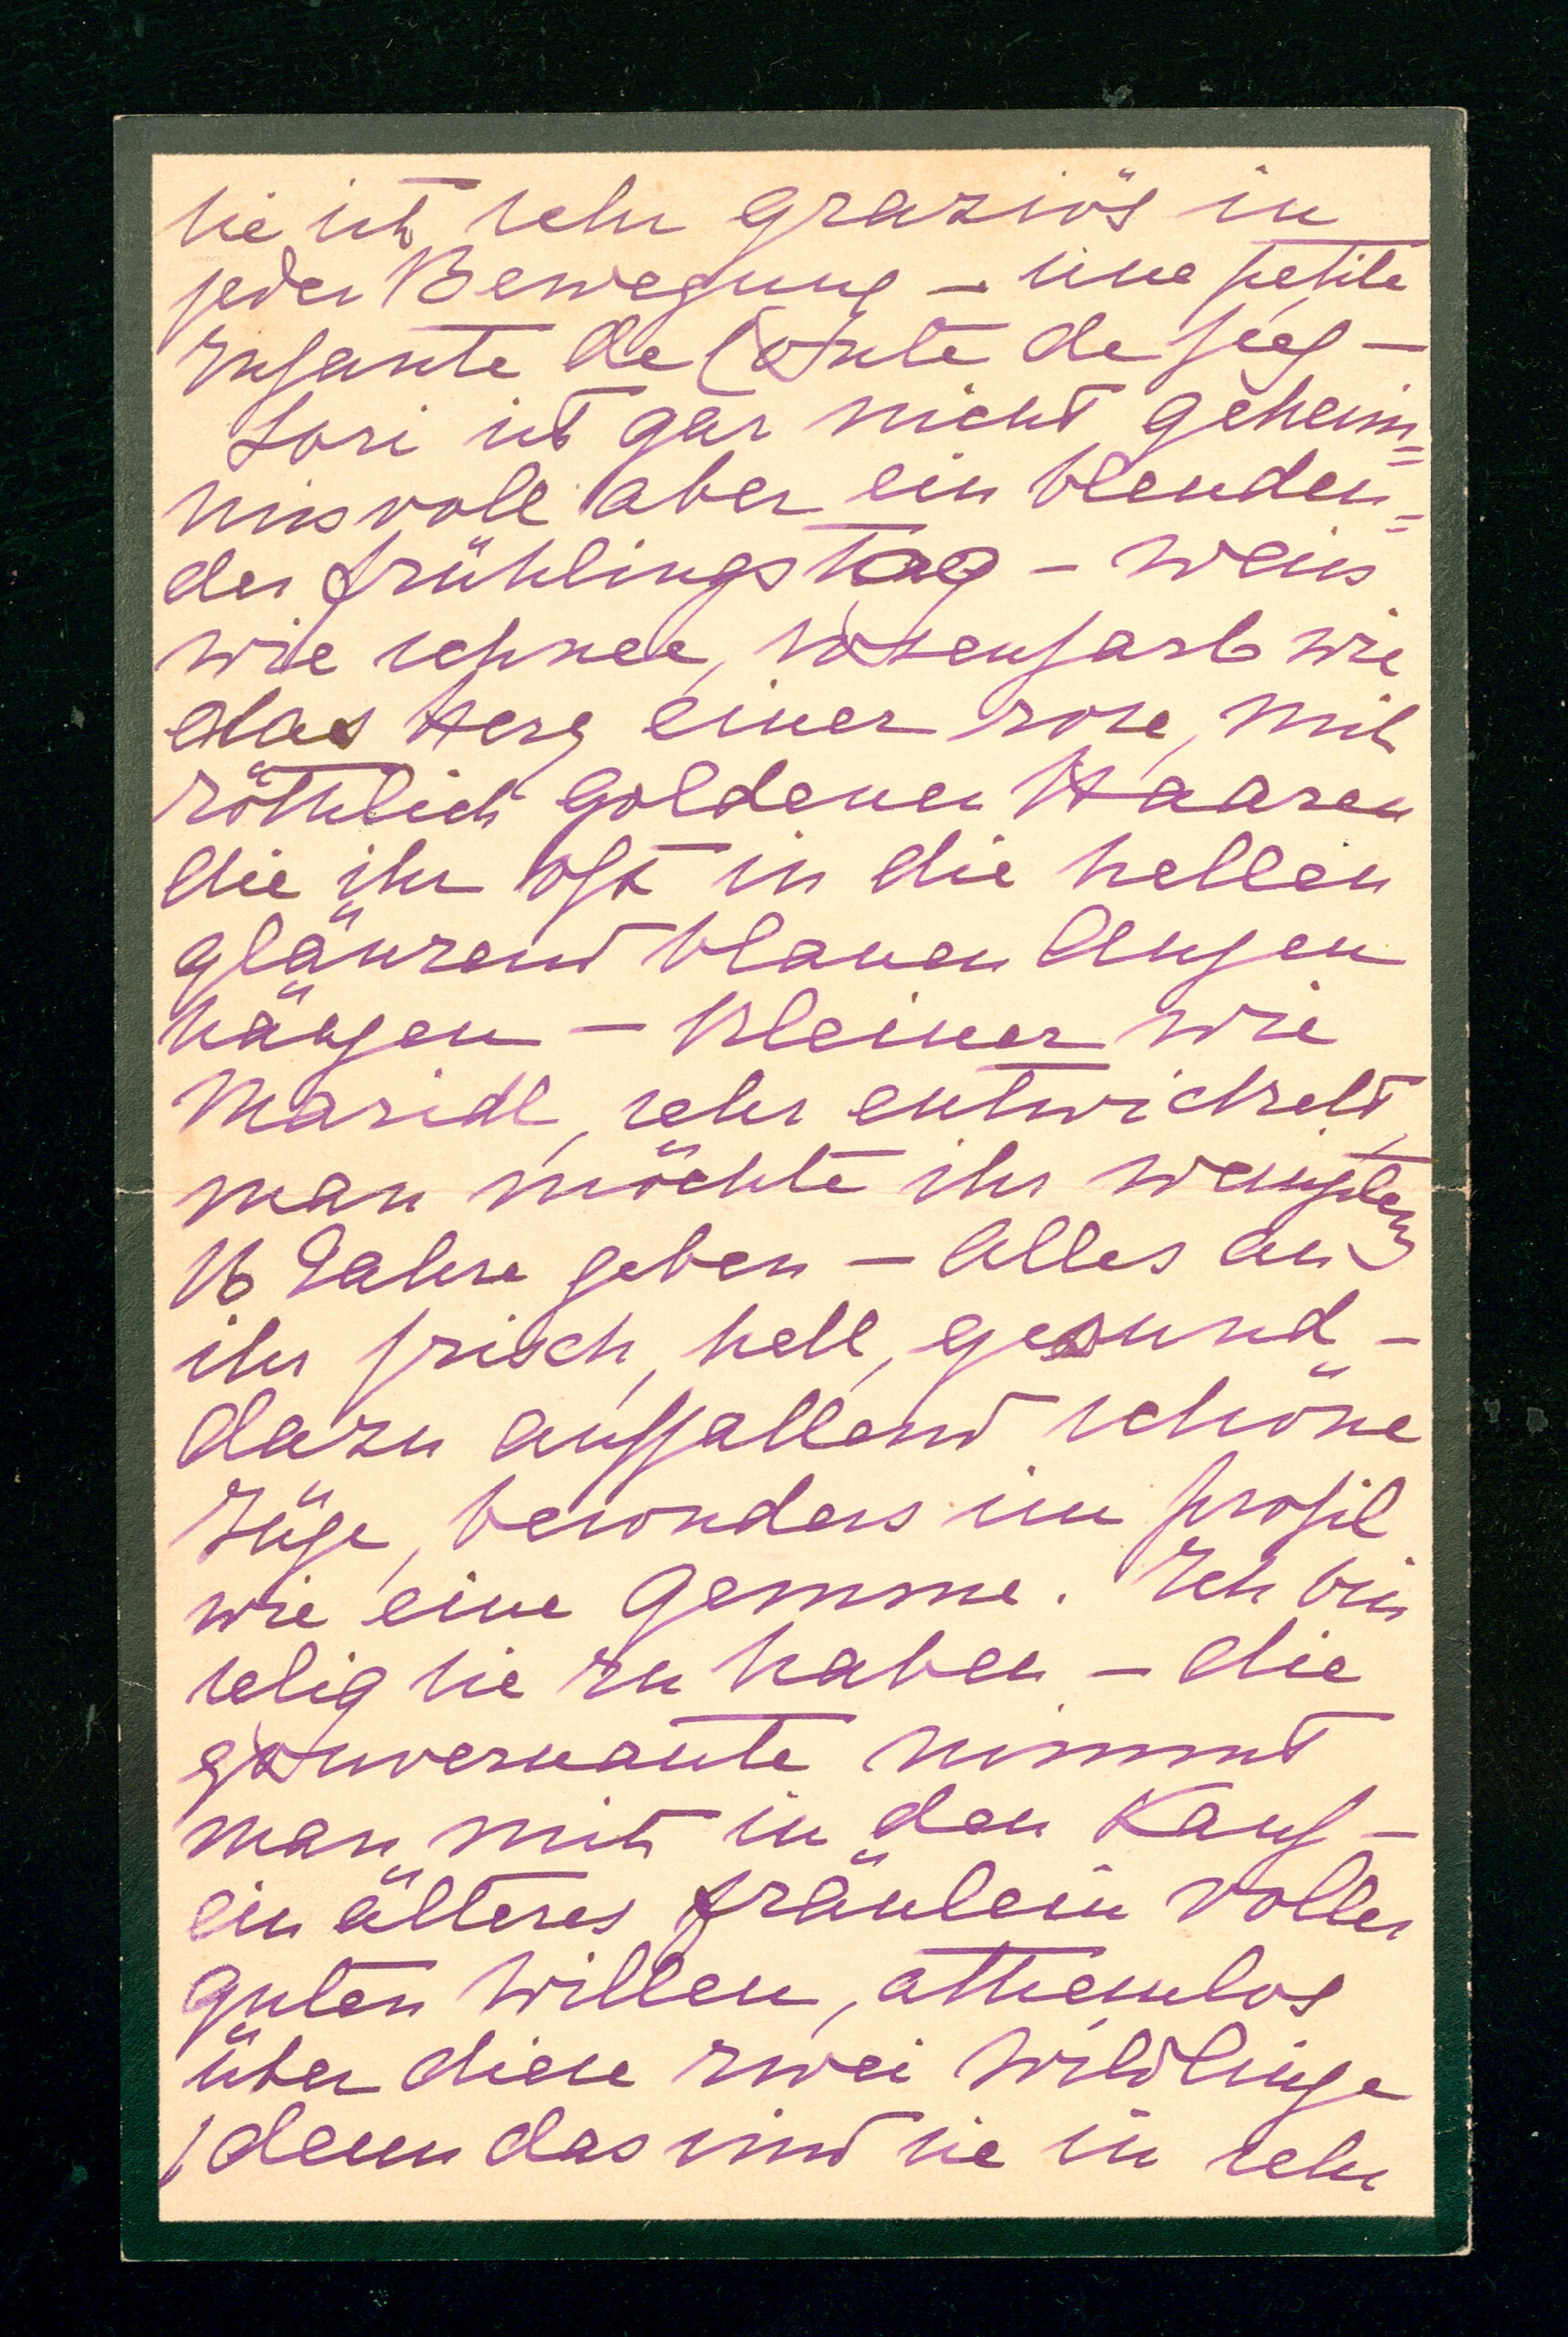 sie ist sehr graziös in
jeder Bewegung – une petite
Infante de Conte de feés –
Lori ist gar nicht geheim=
nisvoll aber ein blenden=
der Frühlingstag – weiss
wie schnee, rosenfarb wie
das Herz einer rose, mit
röthlich goldenen Haaren
die ihr oft in die hellen
glänzend blauen Augen
hängen – Kleiner wie
Maridl, sehr entwickelt,
man möchte ihr wenigstens
16 Jahre geben – Alles an
ihr frisch, hell, gesund –
dazu auffallend schöne
Züge, besonders im profil
wie eine Gemme. Ich bin
selig sie zu haben – die
gouvernante nimmt
man mit in den Kauf –
ein älteres Fräulein voller
guten Willen, athemlos
über diese zwei Wildlinge
(denn das sind sie in sehr